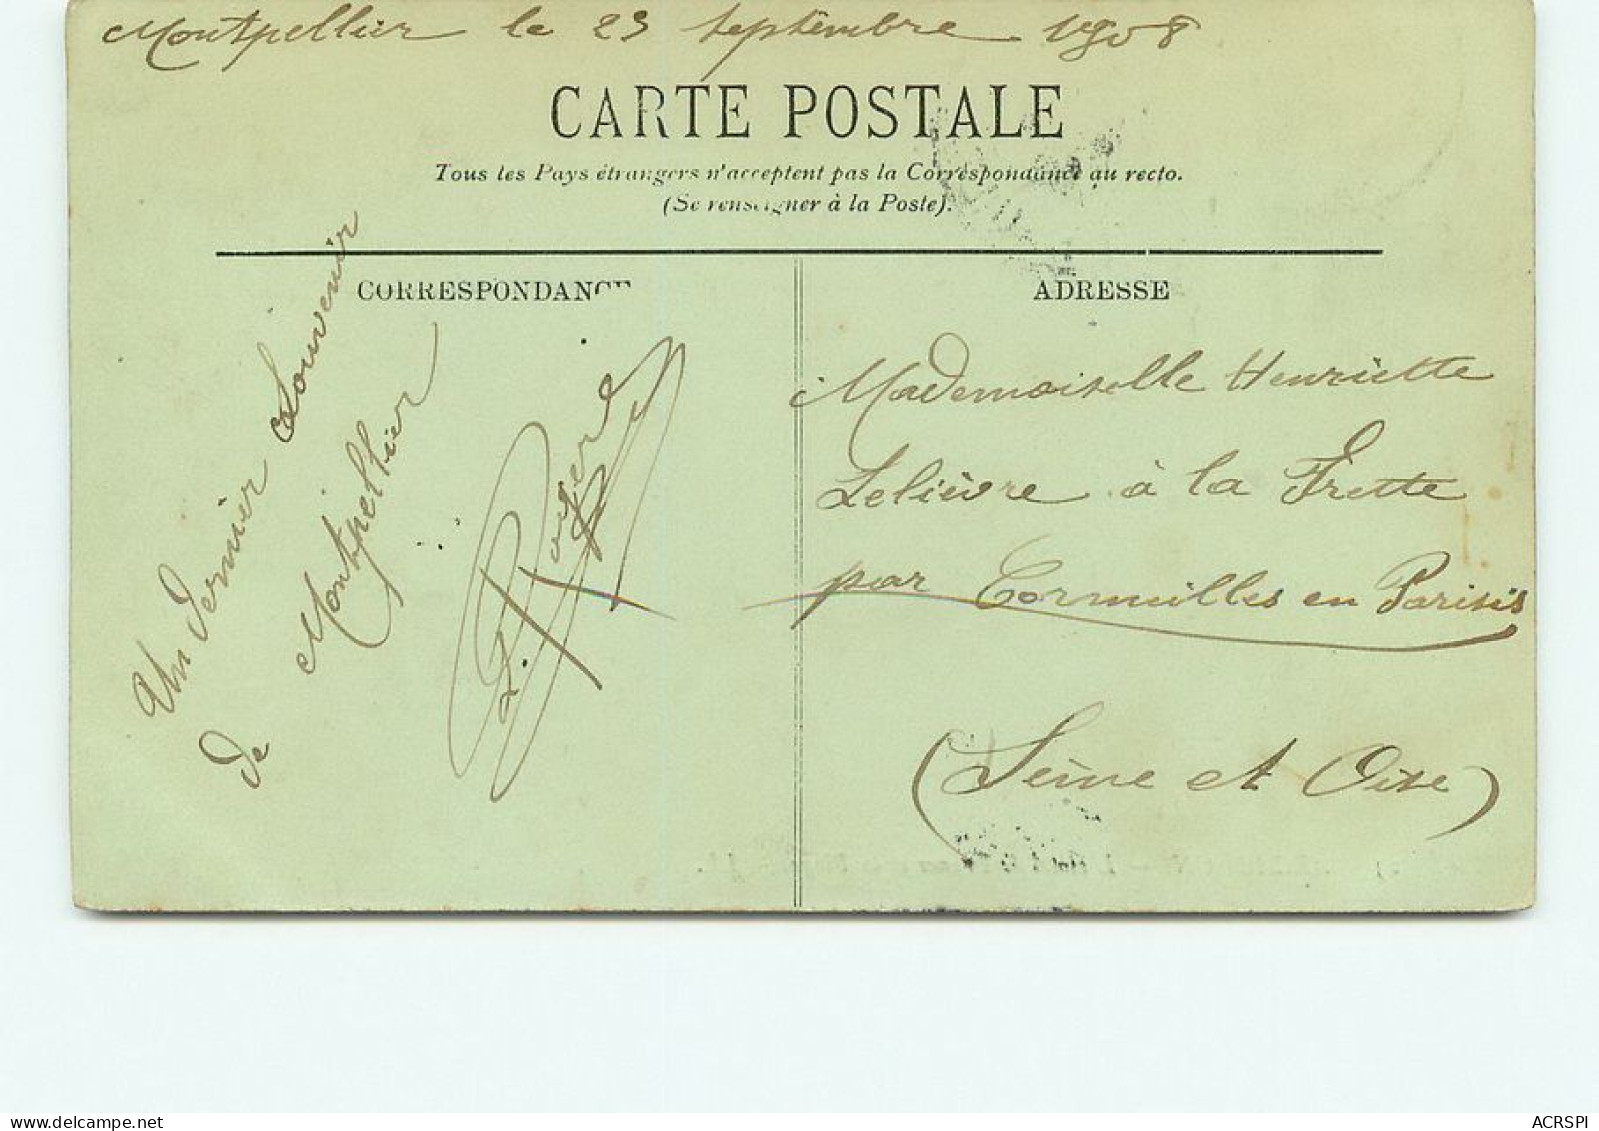 Montpellier le 23 Septembre 1908
CARTE POSTALE
Tous les Pays étrangers n'acceptent pas la Correspondance au recto.
(Se renseigner à la Poste).
CORRESPONDANCE
ADRESSE
Un Dernier Souvenir
de Montpellier
Mademoiselle Henriette
Lelièvre à la Frette
par Cormeilles en Parisis
(Seine et Oise)
ACRSPI